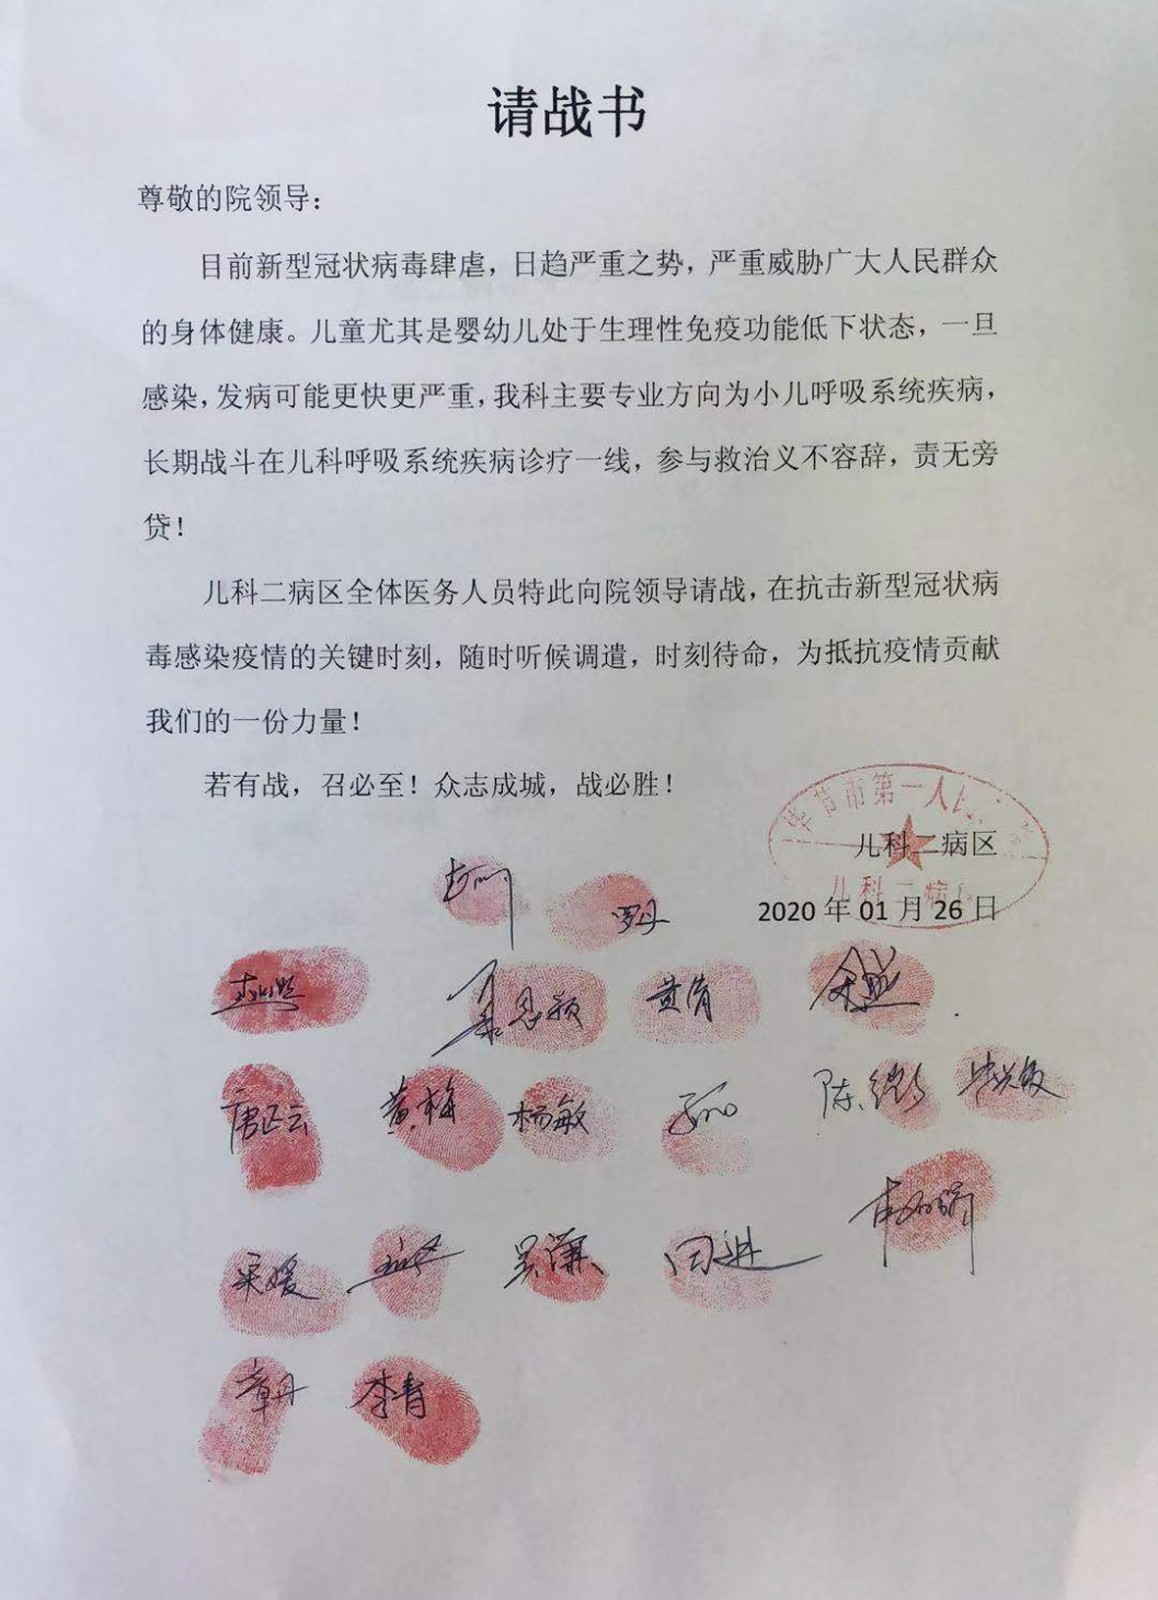 请战书
尊敬的院领导：
目前新型冠状病毒肆虐，日趋严重之势，严重威胁广大人民群众
的身体健康。儿童尤其是婴幼儿处于生理性免疫功能低下状态，一旦
感染，发病可能更快更严重，我科主要专业方向为小儿呼吸系统疾病，
长期战斗在儿科呼吸系统疾病诊疗一线，参与救治义不容辞，责无旁
贷！
儿科二病区全体医务人员特此向院领导请战，在抗击新型冠状病
毒感染疫情的关键时刻，随时听候调遣，时刻待命，为抵抗疫情贡献
我们的一份力量！
若有战，召必至！众志成城，战必胜！
毕节市第一人民
儿科二病区
儿科二病
2020 年 01 月 26 日
罗丹
黄倩
唐廷云 黄梅 杨敏
吴谦
章丹 李青